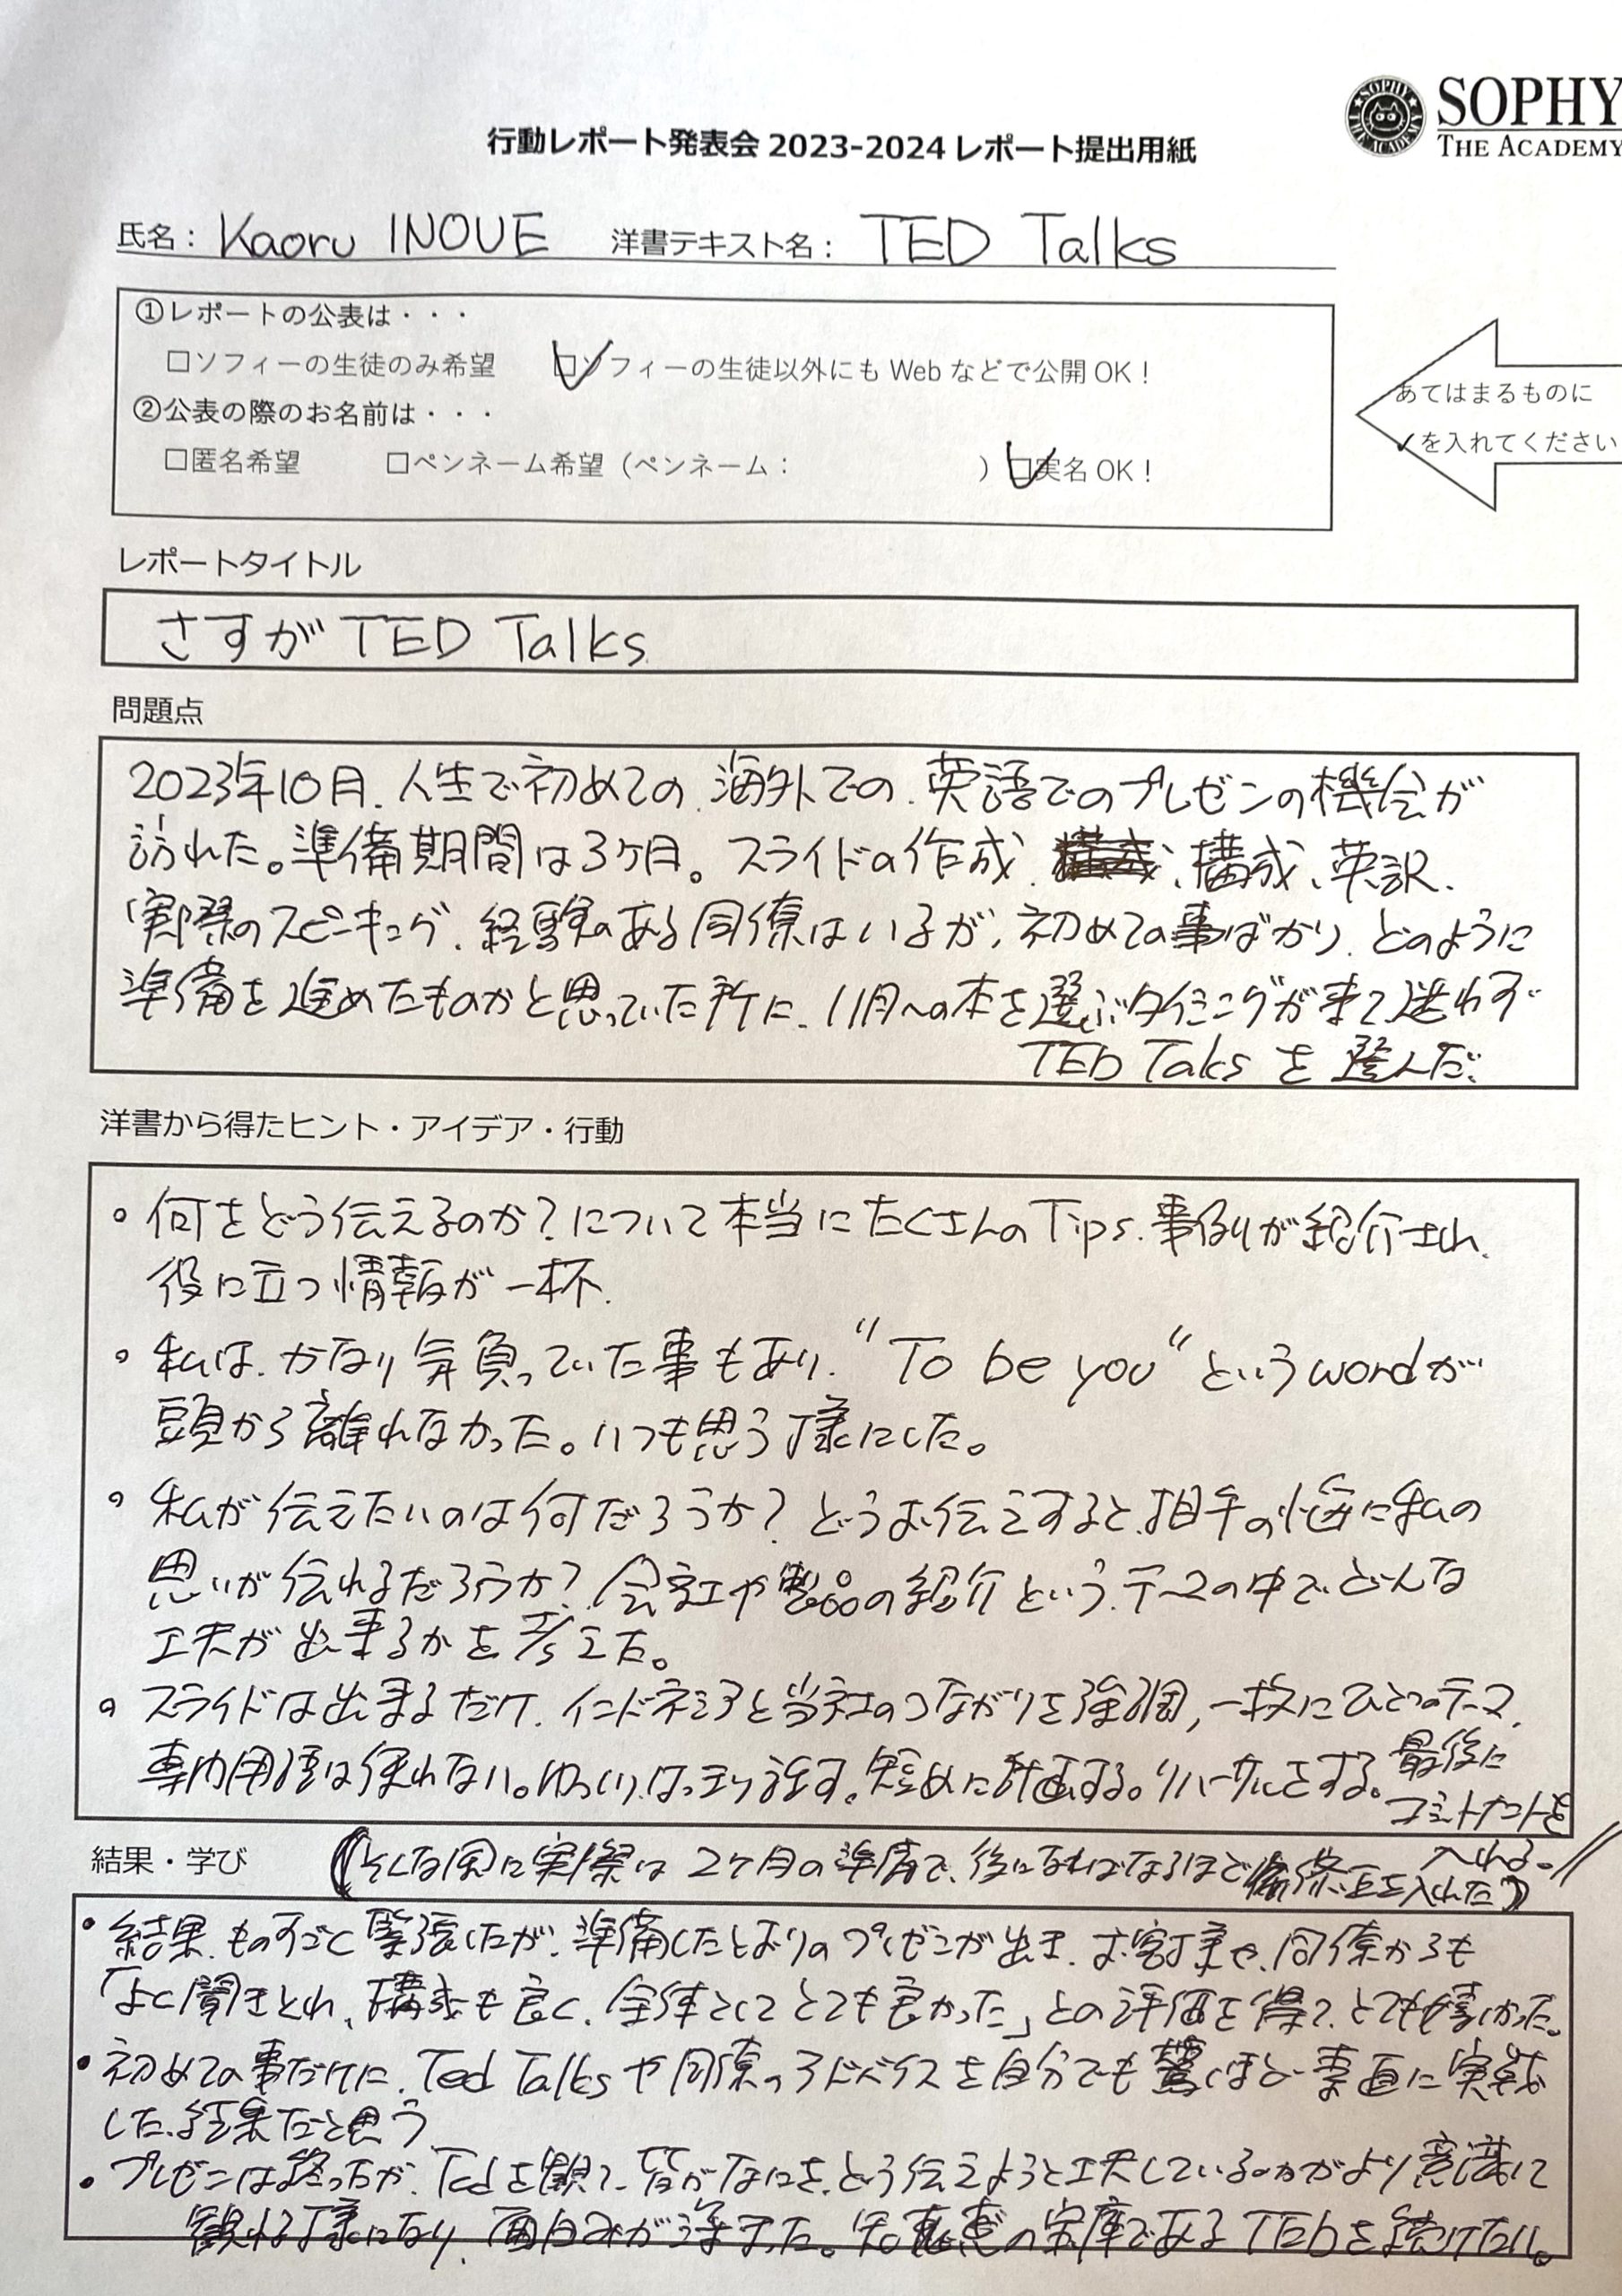 SOPHY
THE ACADEMY
行動レポート発表会 2023-2024 レポート提出用紙
氏名: Kaoru INOUE 洋書テキスト名: TED Talks
①レポートの公表は・・・
□ソフィーの生徒のみ希望 □ソフィーの生徒以外にも Web などで公開 OK!
②公表の際のお名前は・・・
□匿名希望 □ペンネーム希望(ペンネーム: ) □実名 OK!
あてはまるものに
✓を入れてください
レポートタイトル
さすが TED Talks
問題点
2023年10月、人生で初めての、海外での、英語でのプレゼンの機会が
訪れた。準備期間は3ヶ月。スライドの作成、構成、英訳、
実際のスピーキング、経験のある同僚はいるが、初めての事ばかり、どのように
準備を進めたものかと思っていた所に、11月への本を選ぶタイミングが来て迷わず
TED Taks を選んだ。
洋書から得たヒント・アイデア・行動
。何をどう伝えるのか?について本当にたくさんのTips、事例が紹介され、
役に立つ情報が一杯。
。私は、かなり気負っていた事もあり、"To be you"というwordが
頭から離れなかった。いつも思う様にした。
。私が伝えたいのは何だろうか?どうお伝えすると、相手の脳に私の
思いが伝わるだろうか?会社や製品の紹介という、テーマの中でどんな
工夫が出来るかを考えた。
。スライドは出来るだけ、インドネシアと当社のつながりを強調、一枚にひとつのテーマ、
専門用語は使わない。ゆっくり、はっきり話す。短めに計画する。リハーサルをする。最後に
コミットメントを
入れる。
結果・学び (そんな風に実際は2ヶ月の準備で、後になればなるほど修正を入れた)
・結果、ものすごく緊張したが、準備したとおりのプレゼンが出来、お客様や、同僚からも
「よく聞きとれ、構成も良く、全体としてとても良かった」との評価を得て、とても嬉しかった。
・初めての事だけに、Ted Talksや同僚のアドバイスを自分でも驚くほど素直に実践
した結果だと思う
・プレゼンは終ったが、Tedを観て、皆がなにを、どう伝えようと工夫しているのかがより意識して
観れる様になり、面白みが増ました。知恵の宝庫であるTEDを続けたい。